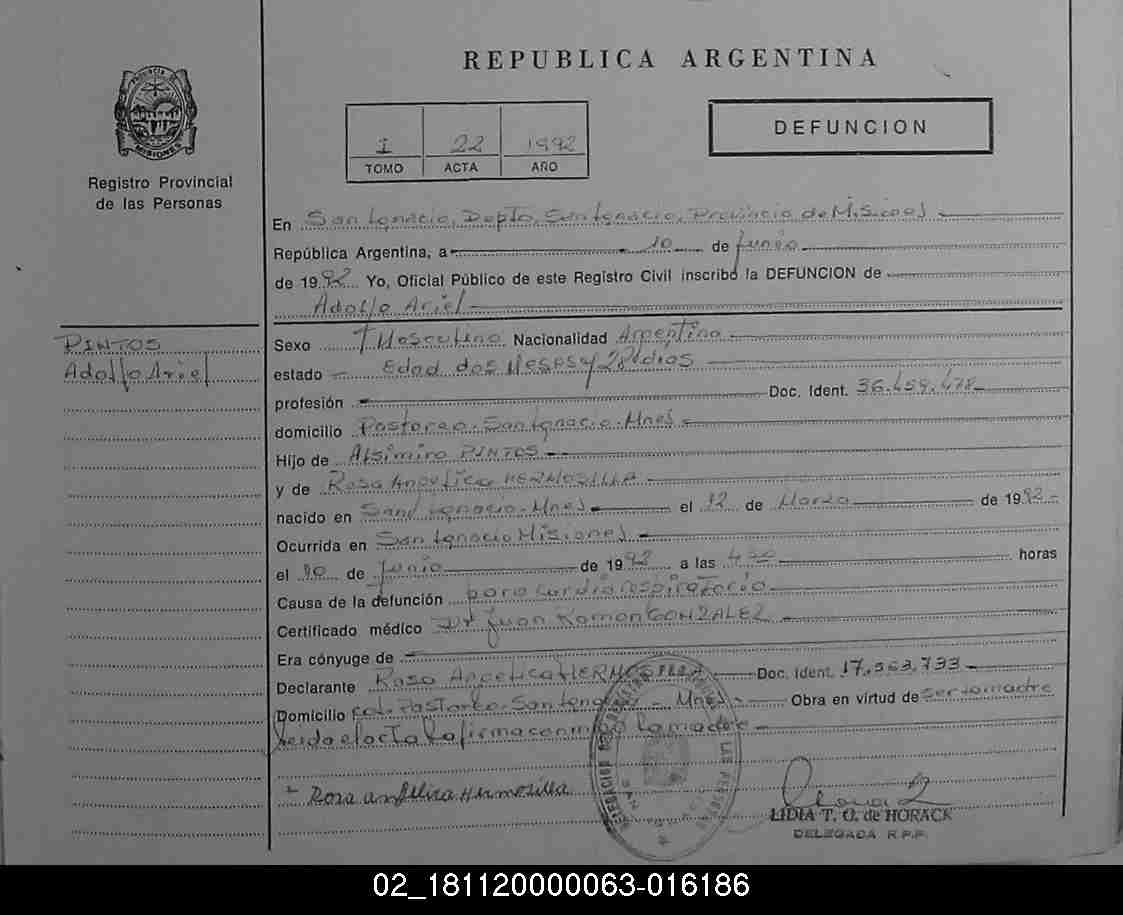 PROVINCIA DE
MISIONES
Registro Provincial
de las Personas
REPUBLICA ARGENTINA
1 22 1992
TOMO ACTA AÑO
DEFUNCION
En San Ignacio, Depto. San Ignacio, Provincia de Misiones
República Argentina, a 10 de Junio
de 1992 Yo, Oficial Público de este Registro Civil inscribo la DEFUNCION de
Adolfo Ariel
PINTOS
Adolfo Ariel
Sexo Masculino Nacionalidad Argentina
estado Edad dos Meses y 28 dias
profesión Doc. Ident. 36.459.478
domicilio Pastoreo. San Ignacio. Mnes
Hijo de Alsimiro PINTOS
y de Rosa Angelica HERMOSILLA
nacido en San Ignacio. Mnes el 12 de Marzo de 1992
Ocurrida en San Ignacio Misiones
el 10 de Junio de 1992 a las horas
Causa de la defunción paro cardiorespiratorio
Certificado médico Dr Juan Ramon GONZALEZ
Era cónyuge de
Declarante Rosa Angelica HERMOSILLA Doc. Ident. 17.563.733
Domicilio col. Pastoreo. San Ignacio - Mnes Obra en virtud de ser la madre
leida el acta la firma conmigo la madre
Rosa angelica Hermosilla
LIDIA T. O. de HORACK
DELEGADA R.P.P.
02_181120000063-016186